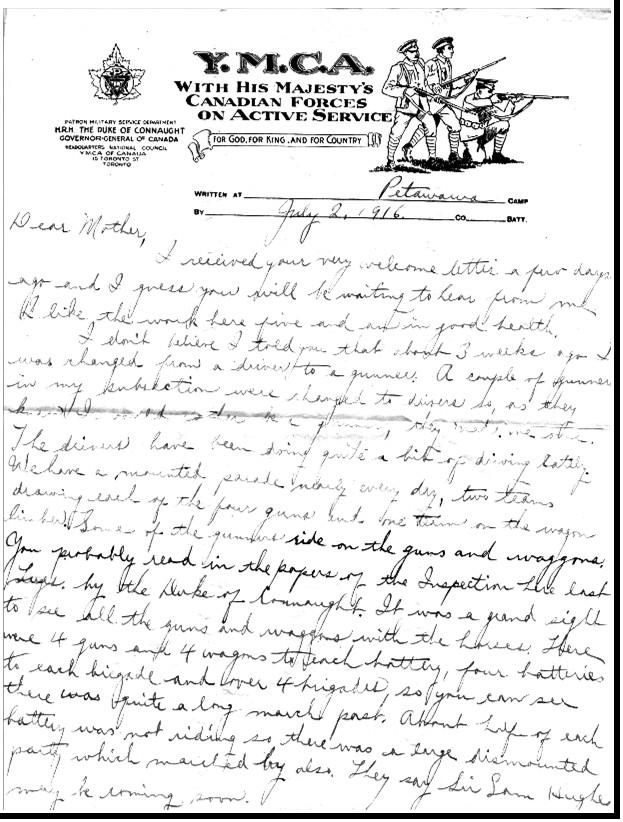 Y.M.C.A.
WITH HIS MAJESTY'S
CANADIAN FORCES
ON ACTIVE SERVICE
FOR GOD, FOR KING, AND FOR COUNTRY
PATRON MILITARY SERVICE DEPARTMENT
H.R.H. THE DUKE OF CONNAUGHT
GOVERNOR-GENERAL OF CANADA
HEADQUARTERS NATIONAL COUNCIL
Y M C A OF CANADA
15 TORONTO ST
TORONTO
WRITTEN AT Petawawa CAMP
BY July 2, 1916. CO. BATT.
Dear Mother,
I received your very welcome letter a few days
ago and I guess you will be waiting to hear from me
I like the work here fine and am in good health.
I don't believe I told you that about 3 weeks ago I
was changed from a driver to a gunner. A couple of gunners
in my subsection were changed to drivers so, as they
I be a they me
The drivers have been doing quite a bit of driving lately.
We have a mounted parade nearly every day, two teams
drawing each of the four guns and one team on the wagon
limber. Some of the gunners ride on the guns and waggons.
You probably read in the papers of the Inspection here last
Tues. by the Duke of Connaught. It was a grand sight
to see all the guns and waggons with the horses. There
were 4 guns and 4 wagons to each battery, four batteries
to each brigade and over 4 brigades, so you can see
there was quite a long march past. About half of each
battery was not riding so there was a large dismounted
party which marched by also. They say Sir Sam Hughes
may be coming soon.